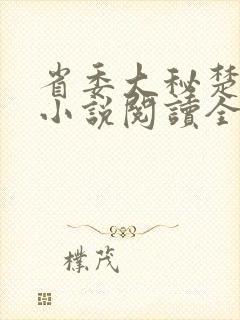 省委大秘楚
小說閱讀全
樸茂